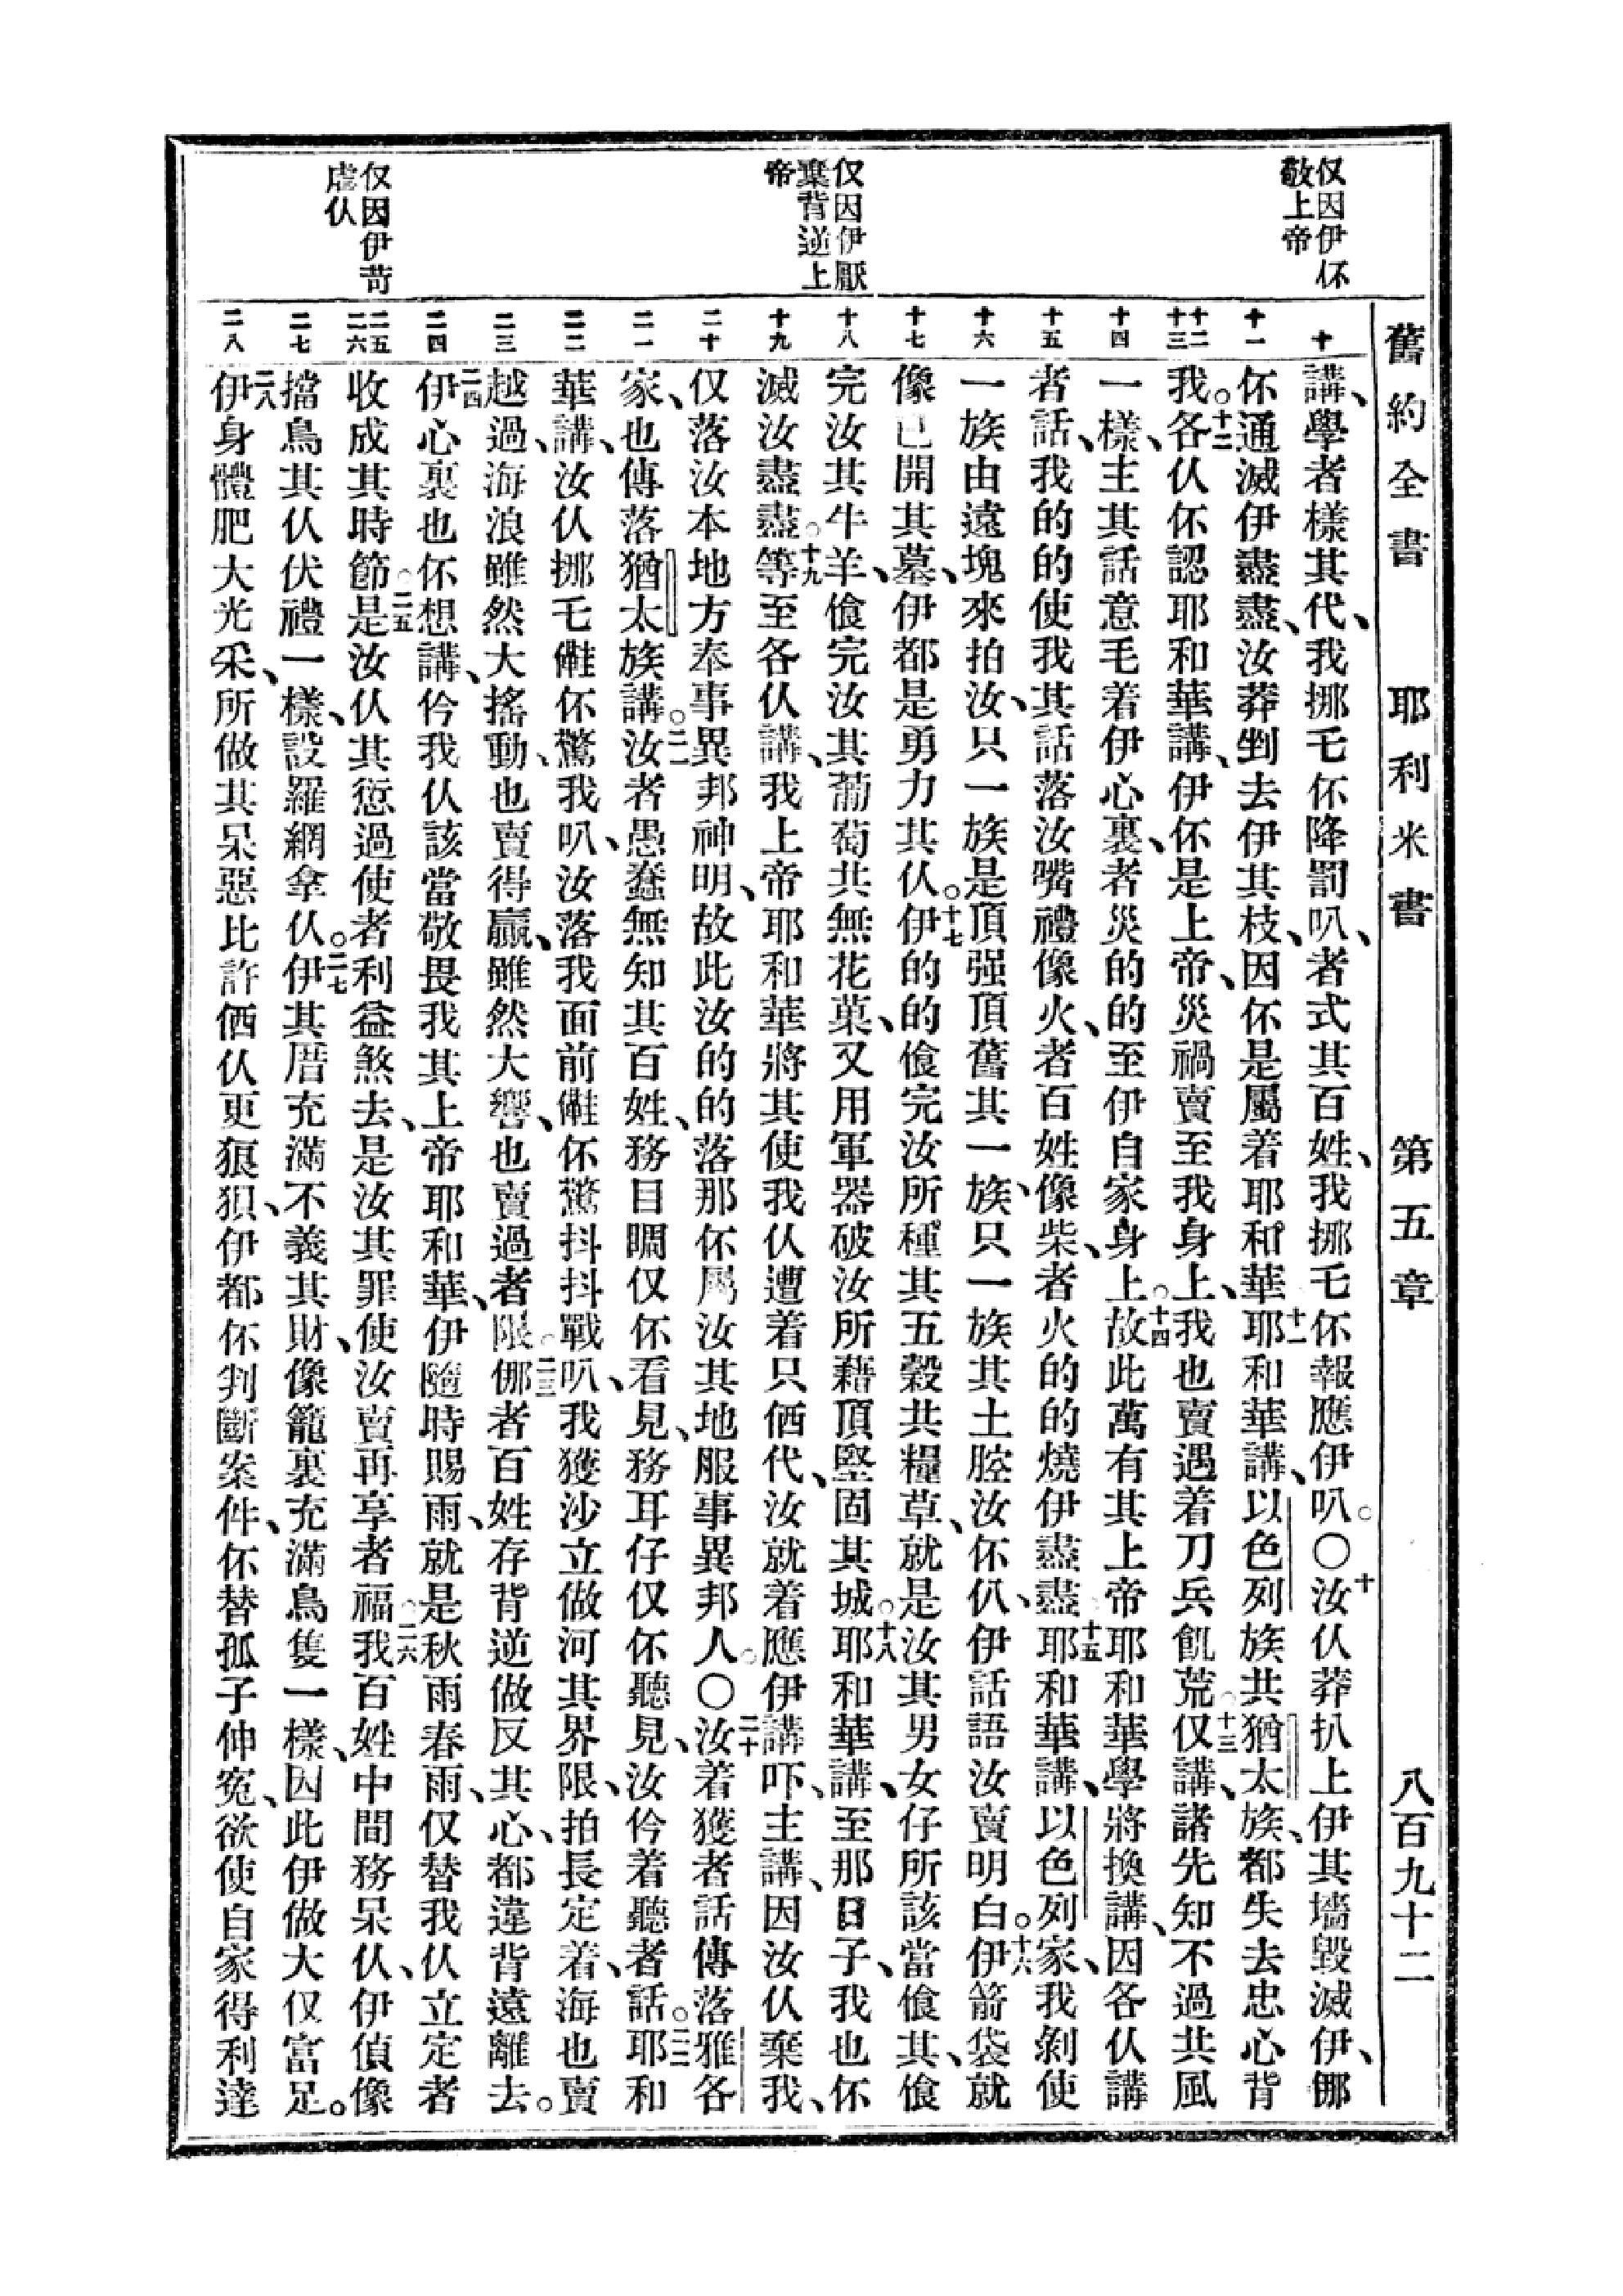 舊約全書　耶利米書　第五章　八百九十二
仅因伊伓
敬上帝
仅因伊厭
棄背逆上
帝
仅因伊苛
虐仈
十
十一
十二
十三
十四
十五
十六
十七
十八
十九
二十
二一
二二
二三
二四
二五
二六
二七
二八
講、學者樣其代、我挪乇伓降罰叭、者式其百姓、我挪乇伓報應伊叭。〇十汝仈莽扒上伊其墻毀滅伊、㑚
伓通滅伊盡盡、汝莽剉去伊其枝、因伓是屬着耶和華、十一耶和華講、以色列族共猶太族、都失去忠心背
我。十二各仈伓認耶和華講、伊伓是上帝、災禍賣至我身上、我也賣遇着刀兵飢荒。十三仅講、諸先知不過共風
一樣、主其話意毛着伊心裏、者災的的至伊自家身上。十四故此萬有其上帝耶和華學將換講、因各仈講
者話、我的的使我其話落汝嘴禮像火、者百姓像柴、者火的的燒伊盡盡。十五耶和華講、以色列家、我剝使
一族由遠塊來拍汝、只一族是頂强頂舊其一族、只一族其土腔汝伓仈、伊話語汝賣明白。十六伊箭袋就
像已開其墓、伊都是勇力其仈。十七伊的的飡完汝所種其五穀共糧草、就是汝其男女仔所該當飡其、飡
完汝其牛羊、飡完汝其葡萄共無花菓、又用軍器破汝所藉頂堅固其城。十八耶和華講、至那日子、我也伓
滅汝盡盡。十九等至各仈講、我上帝耶和華將其使我仈遭着只㑚代、汝就着應伊講吓、主講、因汝仈棄我、
仅落汝本地方奉事異邦神明、故此汝的的落那伓屬汝其地服事異邦人。〇二十汝着獲者話傳落雅各
家、也傳落猶太族講。二一汝者愚蠢無知其百姓、務目瞯仅伓看見、務耳仔仅伓聽見、汝仱着聽者話。二二耶和
華講、汝仈挪乇㒑伓驚我叭、汝落我面前㒑伓驚抖抖戰叭、我獲沙立做河其界限、拍長定着、海也賣
越過、海浪雖然大搖動、也賣得贏、雖然大響、也賣過者限。二三㑚者百姓存背逆做反其心、都違背遠離去。
二四伊心裏也伓想講、仱我仈該當敬畏我其上帝耶和華、伊隨時賜雨、就是秋雨春雨、仅替我仈立定者
收成其時節。二五是汝仈其愆過使者利益煞去、是汝其罪使汝賣再享者福。二六我百姓中間務呆仈、伊偵像
擋鳥其仈伏禮一樣、設羅網拿仈。二七伊其厝充滿不義其財、像籠裏充滿鳥隻一樣、因此伊做大仅富足。
二八伊身體肥大光釆、所做其呆惡比許㑚仈更狼狽、伊都伓判斷案件、伓替孤子伸寃、欲使自家得利達